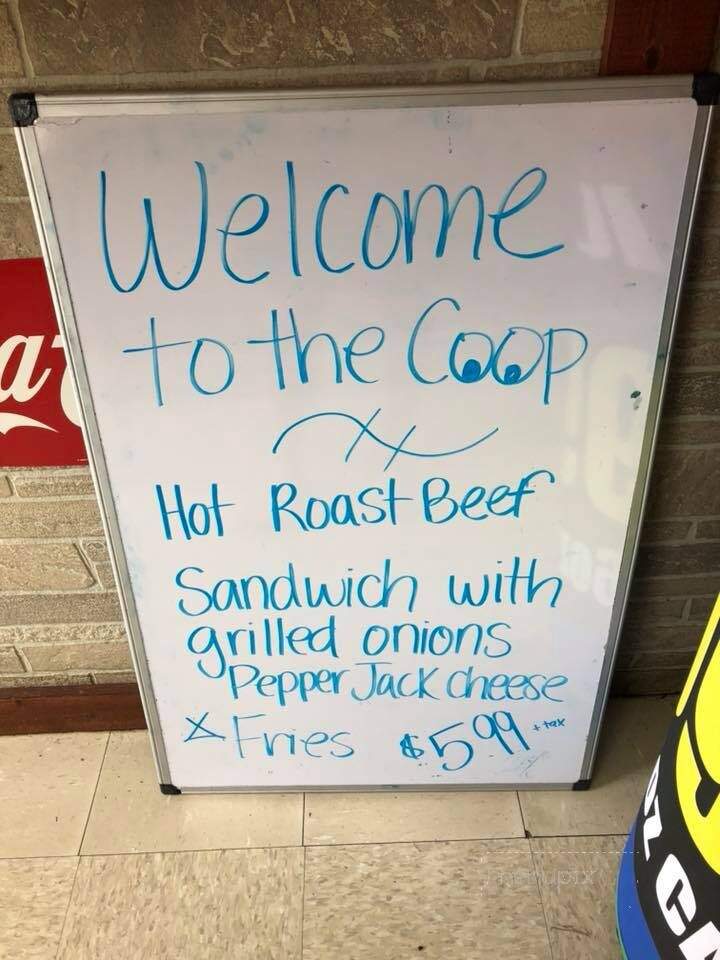 Welcome
to the Coop
Hot Roast Beef
Sandwich with
grilled onions
Pepper Jack cheese
& Fries $5.99 + tax
OZ CA
menupix